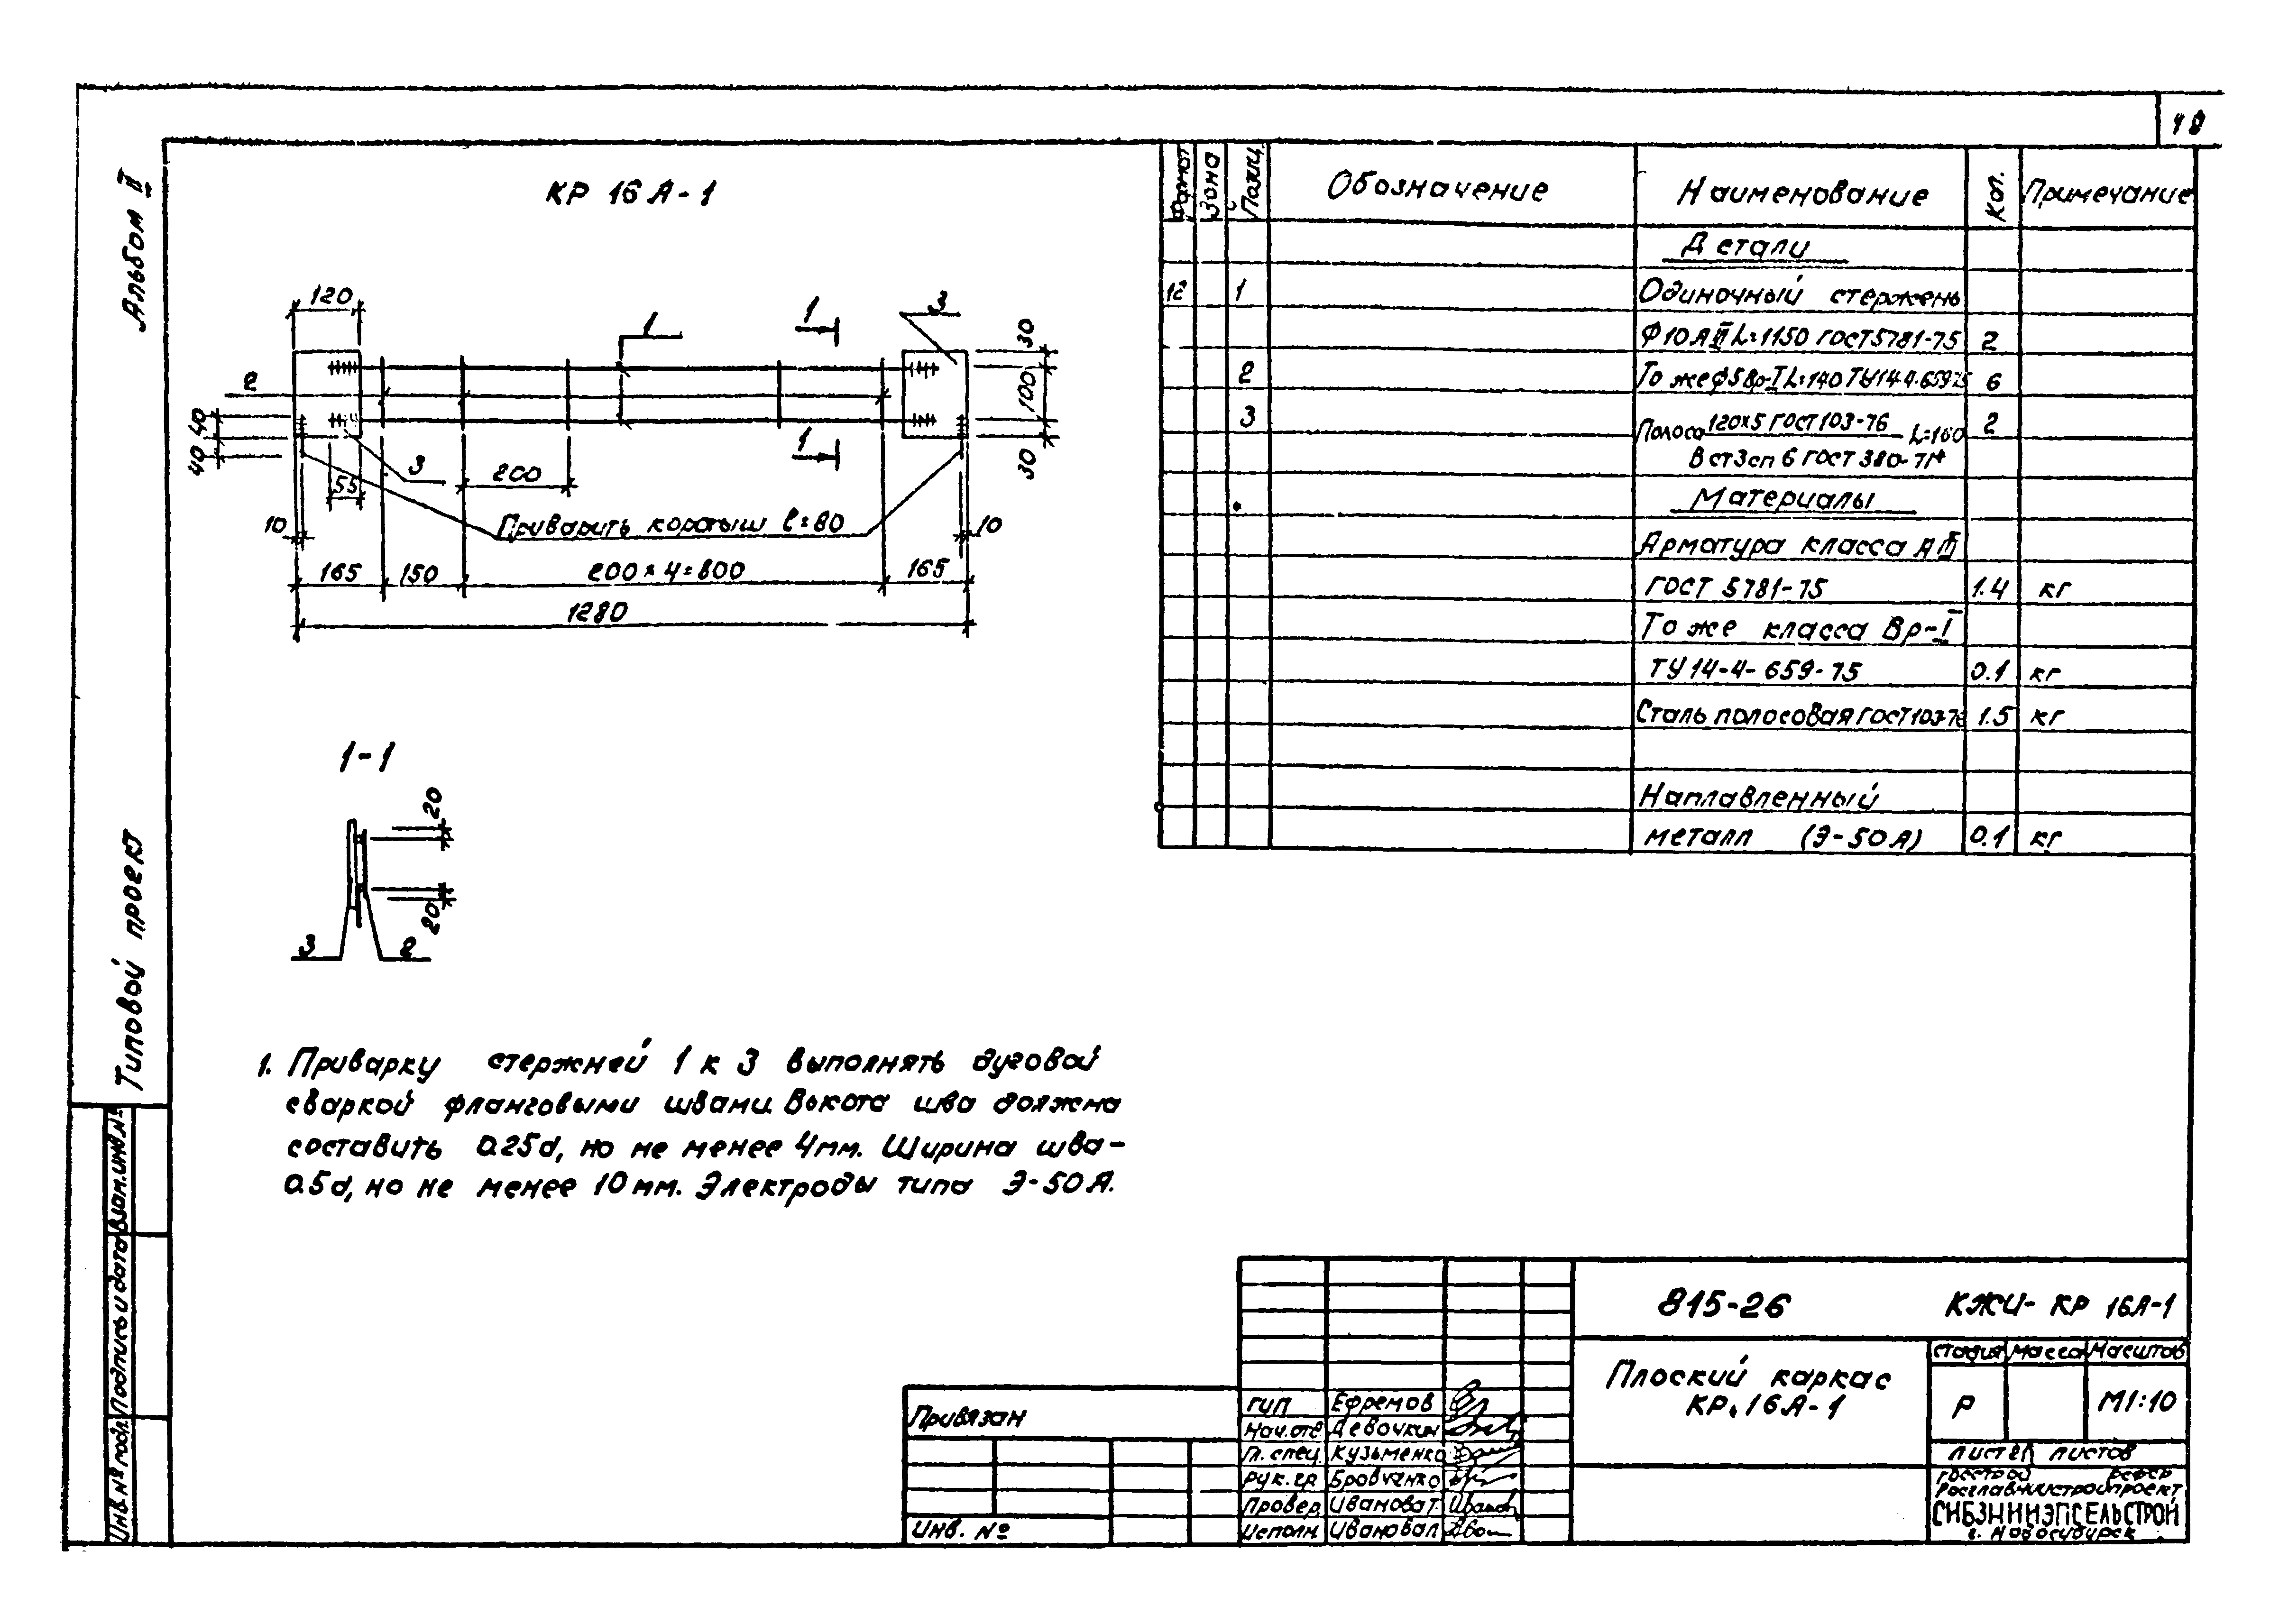 Альбом II
Типовой проект
Инв. № подл.
Подпись и дата
Взам. инв. №
КР 16А-1
120
1
1
3
2
30
100
30
40
40
3
55
200
1
10
Приварить коротыш l=80
10
165
150
200×4=800
165
1280
1-1
20
20
3
2
1. Приварку стержней 1 к 3 выполнять дуговой
сваркой фланговыми швами. Высота шва должна
составить 0.25d, но не менее 4мм. Ширина шва-
0.5d, но не менее 10мм. Электроды типа Э-50А.
Формат Зона Позиц. Обозначение Наименование Кол. Примечание
Детали
12 1 Одиночный стержень
Ф10АIII L=1150 ГОСТ5781-75 2
2 То же ф5Вр-I L=140 ТУ14-4-659-75 6
3 Полоса 120×5 ГОСТ103-76 L=160 2
Вст3сп6 ГОСТ 380-71*
Материалы
Арматура класса АIII
ГОСТ 5781-75 1.4 кг
То же класса Вр-I
ТУ 14-4-659-75 0.1 кг
Сталь полосовая ГОСТ103-76 1.5 кг
Наплавленный
металл (Э-50А) 0.1 кг
815-26 КЖИ- КР 16А-1
Плоский каркас
КР.16А-1
Стадия Масса Масштаб
Р М1:10
Лист Листов
Госстрой РСФСР
Росглавниистройпроект
СИБЗНИИЭПСЕЛЬСТРОЙ
г. Новосибирск
Привязан
Инв. №
ГИП Ефремов
Нач.отд Девочкин
Гл. спец. Кузьменко
Рук. гр. Бровченко
Провер. Иванова Т.
Исполн. Иванова Л.